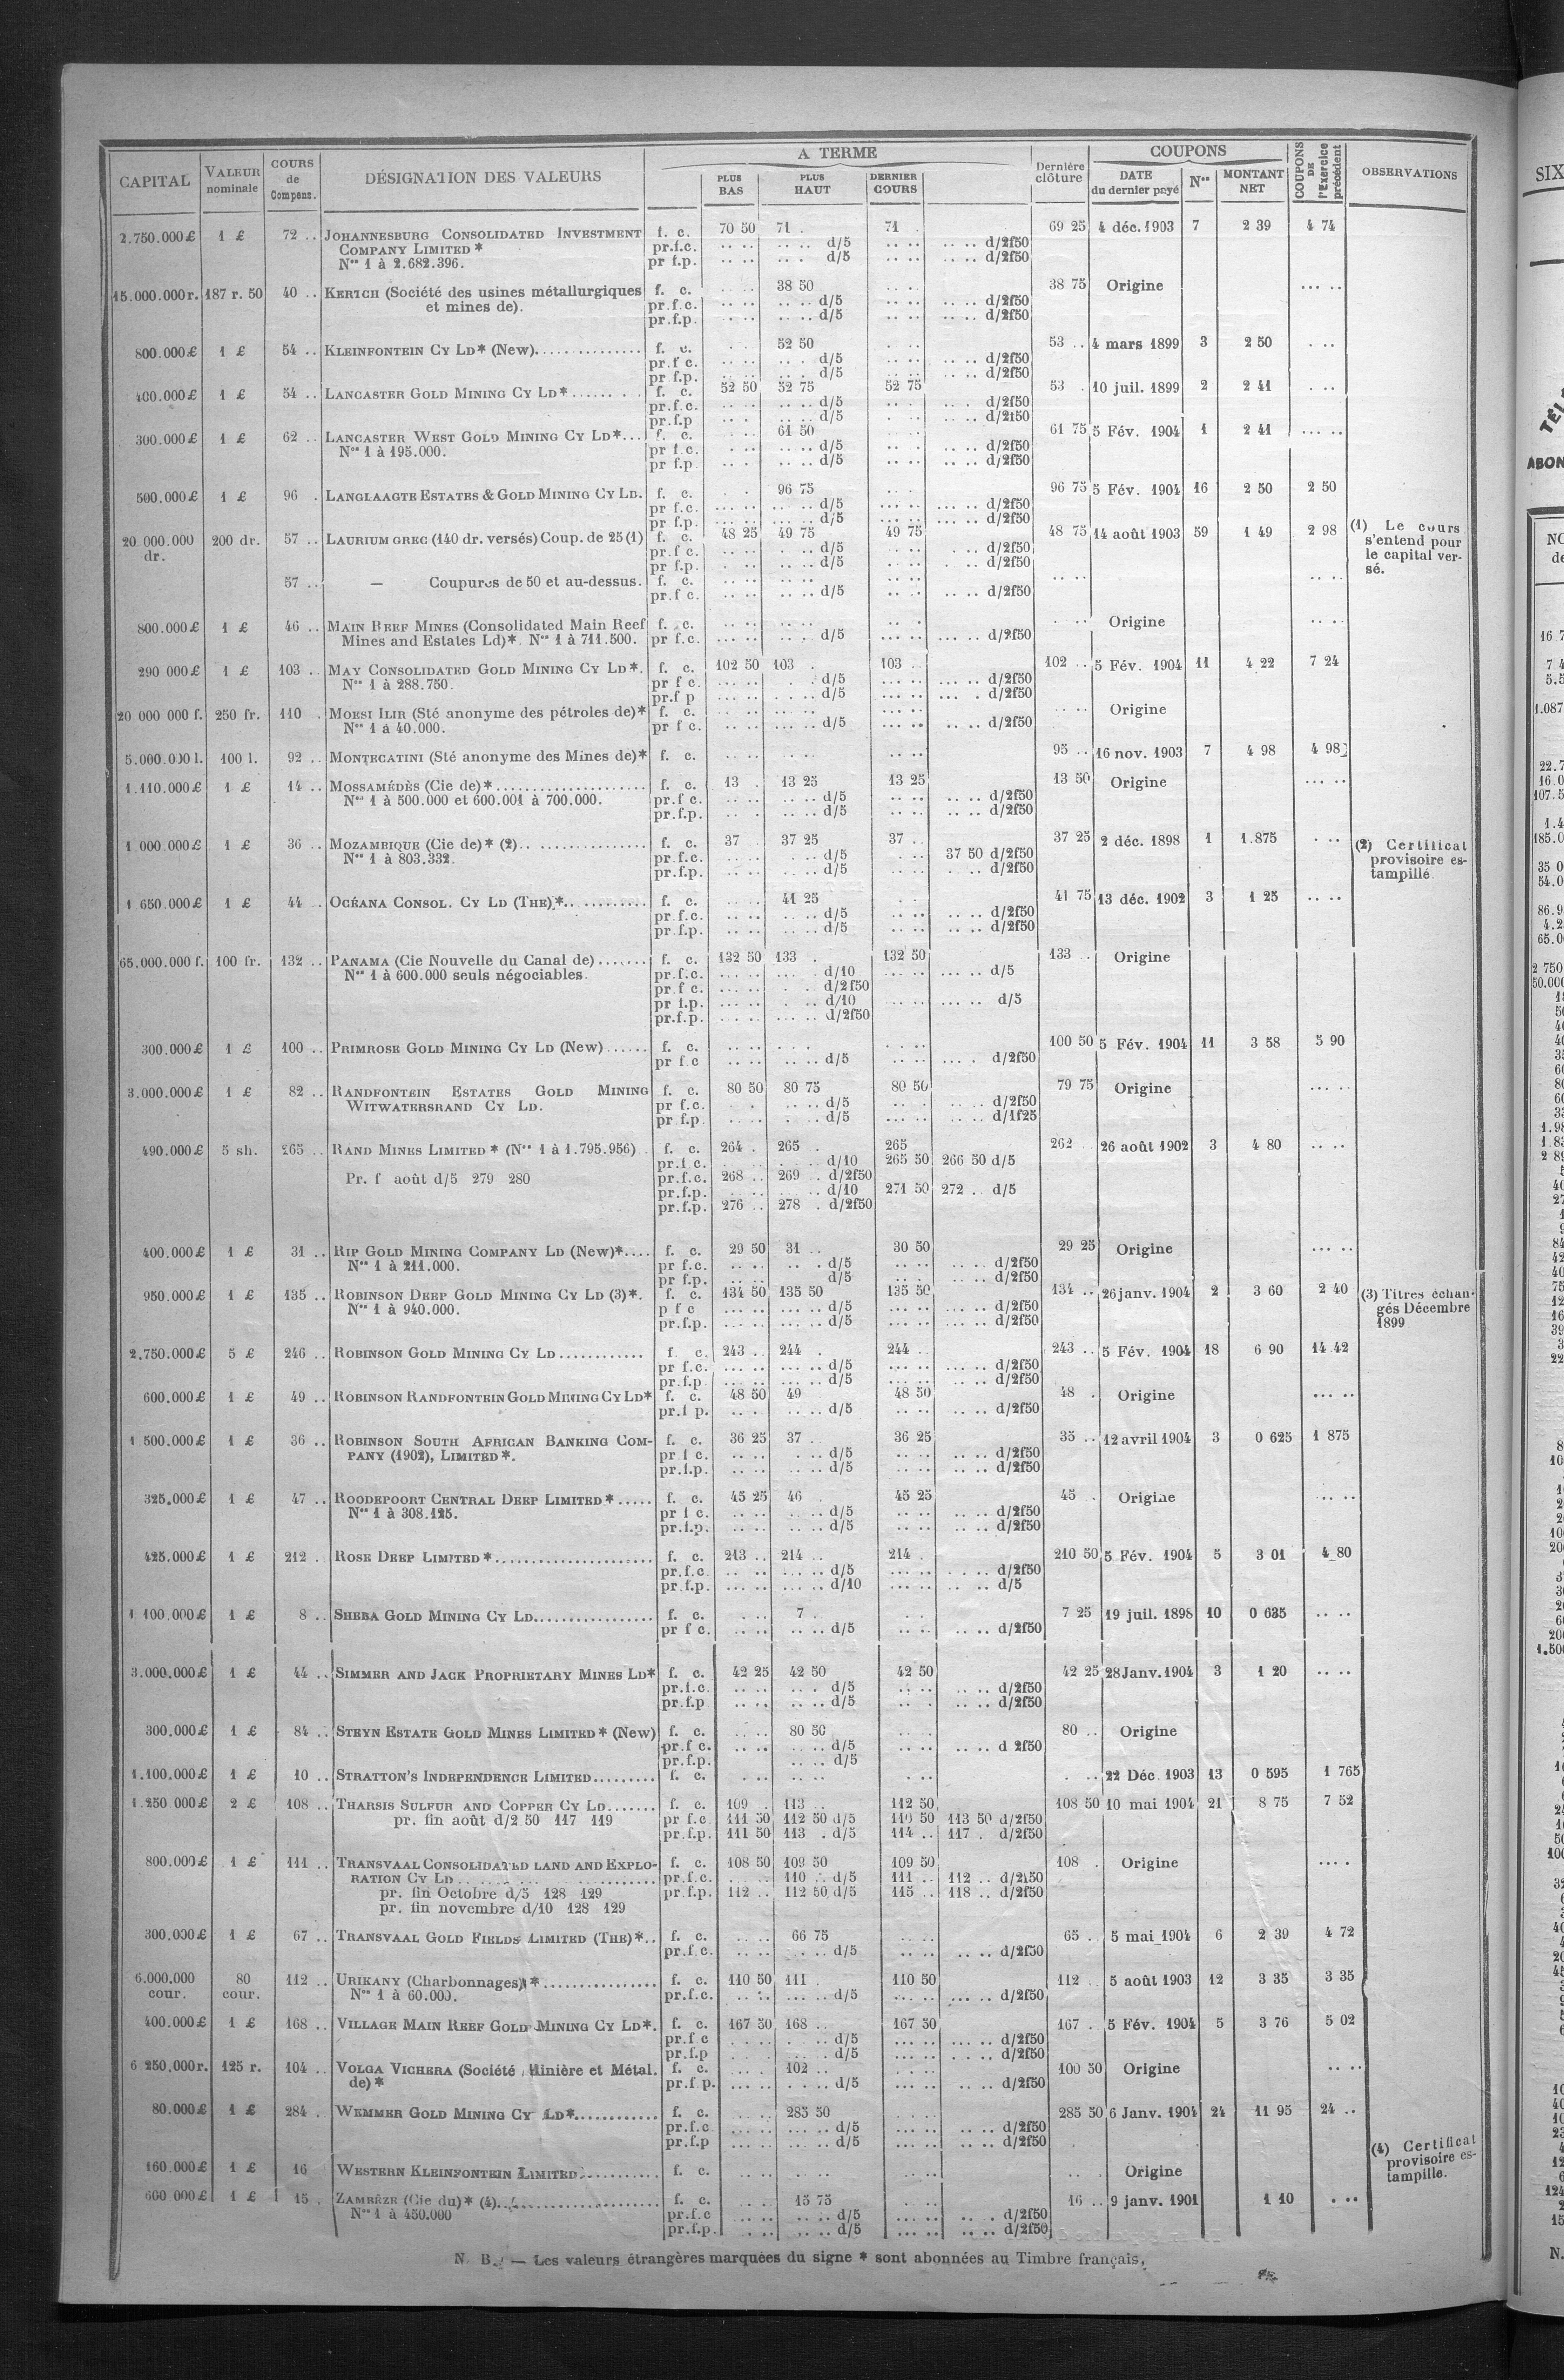 CAPITAL VALEUR nominale COURS de Compens. DÉSIGNATION DES VALEURS A TERME PLUS BAS PLUS HAUT DERNIER COURS Dernière clôture COUPONS DATE du dernier payé Nos MONTANT NET COUPONS DE l'Exercice précédent OBSERVATIONS
2.750.000£ 1 £ 72 .. JOHANNESBURG CONSOLIDATED INVESTMENT f. c. 70 50 71 . 71 . 69 25 4 déc. 1903 7 2 39 4 74
COMPANY LIMITED * pr.f.c. d/5 d/2f50
Nos 1 à 2.682.396. pr f.p. d/5 d/2f50
15.000.000r. 187 r. 50 40 .. KERTCH (Société des usines métallurgiques f. c. 38 50 38 75 Origine
et mines de). pr.f.c. d/5 d/2f50
pr.f.p. d/5 d/2f50
800.000£ 1 £ 54 .. KLEINFONTEIN CY LD* (New). f. c. 52 50 53 .. 4 mars 1899 3 2 50
pr.f c. d/5 d/2f50
pr f.p. d/5 d/2f50
400.000£ 1 £ 54 .. LANCASTER GOLD MINING CY LD* f. c. 52 50 52 75 52 75 53 . 10 juil. 1899 2 2 41
pr.f.c. d/5 d/2f50
pr.f.p d/5 d/2f50
300.000£ 1 £ 62 .. LANCASTER WEST GOLD MINING CY LD* f. c. 61 50 61 75 5 Fév. 1904 1 2 41
Nos 1 à 195.000. pr f.c. d/5 d/2f50
pr f.p. d/5 d/2f50
500.000£ 1 £ 96 . LANGLAAGTE ESTATES & GOLD MINING CY LD. f. c. 96 75 96 75 5 Fév. 1904 16 2 50 2 50
pr f.c. d/5 d/2f50
pr f.p. d/5 d/2f50
20.000.000 200 dr. 57 .. LAURIUM GREC (140 dr. versés) Coup. de 25 (1) f. c. 48 25 49 75 49 75 48 75 14 août 1903 59 1 49 2 98 (1) Le cours
dr. pr.f c. d/5 d/2f50 s'entend pour
pr f.p. d/5 d/2f50 le capital ver-
57 .. — Coupures de 50 et au-dessus. f. c. sé.
pr.f c. d/5 d/2f50
800.000£ 1 £ 46 .. MAIN REEF MINES (Consolidated Main Reef f. c. Origine
Mines and Estates Ld)*. Nos 1 à 711.500. pr f.c. d/5 d/2f50
290 000£ 1 £ 103 .. MAY CONSOLIDATED GOLD MINING CY LD*. f. c. 102 50 103 . 103 .. 102 .. 5 Fév. 1904 11 4 22 7 24
Nos 1 à 288.750. pr f c. d/5 d/2f50
pr.f p d/5 d/2f50
20 000 000 f. 250 fr. 110 . MOESI ILIR (Sté anonyme des pétroles de)* f. c. Origine
Nos 1 à 40.000. pr f c. d/5 d/2f50
5.000.000 l. 100 l. 92 .. MONTECATINI (Sté anonyme des Mines de)* f. c. 95 .. 16 nov. 1903 7 4 98 4 98
1.110.000£ 1 £ 14 .. MOSSAMÉDÈS (Cie de)* f. c. 13 . 13 25 13 25 13 50 Origine
Nos 1 à 500.000 et 600.001 à 700.000. pr.f c. d/5 d/2f50
pr.f.p. d/5 d/2f50
1.000.000£ 1 £ 36 .. MOZAMBIQUE (Cie de)* (2) f. c. 37 . 37 25 37 .. 37 25 2 déc. 1898 1 1.875 (2) Certificat
Nos 1 à 803.332. pr.f.c. d/5 37 50 d/2f50 provisoire es-
pr.f.p. d/5 d/2f50 tampillé.
1 650.000£ 1 £ 44 .. OCÉANA CONSOL. CY LD (THE)* f. c. 41 25 41 75 13 déc. 1902 3 1 25
pr.f.c. d/5 d/2f50
pr.f.p. d/5 d/2f50
65.000.000 f. 100 fr. 132 .. PANAMA (Cie Nouvelle du Canal de) f. c. 132 50 133 . 132 50 133 . Origine
Nos 1 à 600.000 seuls négociables. pr.f.c. d/10 d/5
pr.f c. d/2f50
pr f.p. d/10 d/5
pr.f.p. d/2f50
300.000£ 1 £ 100 .. PRIMROSE GOLD MINING CY LD (New) f. c. 100 50 5 Fév. 1904 11 3 58 5 90
pr f c d/5 d/2f50
3.000.000£ 1 £ 82 .. RANDFONTEIN ESTATES GOLD MINING f. c. 80 50 80 75 80 50 79 75 Origine
WITWATERSRAND CY LD. pr f.c. d/5 d/2f50
pr f.p. d/5 d/1f25
490.000£ 5 sh. 265 .. RAND MINES LIMITED * (Nos 1 à 1.795.956) f. c. 264 . 265 . 265 262 . 26 août 1902 3 4 80
pr.f c. d/10 265 50 266 50 d/5
Pr. f août d/5 279 280 pr.f.c. 268 .. 269 .. d/2f50
pr.f.p. d/10 271 50 272 .. d/5
pr.f.p. 276 .. 278 . d/2f50
400.000£ 1 £ 31 .. RIP GOLD MINING COMPANY LD (New)* f. c. 29 50 31 .. 30 50 29 25 Origine
Nos 1 à 211.000. pr f.c. d/5 d/2f50
pr f.p. d/5 d/2f50
950.000£ 1 £ 135 .. ROBINSON DEEP GOLD MINING CY LD (3)*. f. c. 134 50 135 50 135 50 134 .. 26 janv. 1904 2 3 60 2 40 (3) Titres échan-
Nos 1 à 940.000. p f c d/5 d/2f50 gés Décembre
pr.f.p. d/5 d/2f50 1899
2.750.000£ 5 £ 246 .. ROBINSON GOLD MINING CY LD f. c. 243 .. 244 . 244 .. 243 .. 5 Fév. 1904 18 6 90 14.42
pr f.c. d/5 d/2f50
pr.f.p d/5 d/2f50
600.000£ 1 £ 49 .. ROBINSON RANDFONTEIN GOLD MINING CY LD* f. c. 48 50 49 48 50 48 . Origine
pr.f p. d/5 d/2f50
1 500.000£ 1 £ 36 .. ROBINSON SOUTH AFRICAN BANKING COM- f. c. 36 25 37 . 36 25 35 .. 12 avril 1904 3 0 625 1 875
PANY (1902), LIMITED*. pr f c. d/5 d/2f50
pr.f.p. d/5 d/2f50
325.000£ 1 £ 47 .. ROODEPOORT CENTRAL DEEP LIMITED* f. c. 45 25 46 . 45 25 45 . Origine
Nos 1 à 308.125. pr f c. d/5 d/2f50
pr.f.p. d/5 d/2f50
425.000£ 1 £ 212 . ROSE DEEP LIMITED* f. c. 213 .. 214 .. 214 . 210 50 5 Fév. 1904 5 3 01 4 80
pr.f.c d/5 d/2f50
pr.f.p. d/10 d/5
1 100.000£ 1 £ 8 .. SHEBA GOLD MINING CY LD f. c. 7 .. 7 25 19 juil. 1898 10 0 635
pr f c. d/5 d/2f50
3.000.000£ 1 £ 44 .. SIMMER AND JACK PROPRIETARY MINES LD* f. c. 42 25 42 50 42 50 42 25 28 Janv. 1904 3 1 20
pr.f.c. d/5 d/2f50
pr.f.p d/5 d/2f50
300.000£ 1 £ 84 .. STEYN ESTATE GOLD MINES LIMITED* (New) f. c. 80 50 80 .. Origine
pr.f c. d/5 d 2f50
pr.f.p. d/5
1.100.000£ 1 £ 10 .. STRATTON'S INDEPENDENCE LIMITED f. c. 22 Déc. 1903 13 0 595 1 765
1.250 000£ 2 £ 108 .. THARSIS SULFUR AND COPPER CY LD f. c. 109 . 113 .. 112 50 108 50 10 mai 1904 21 8 75 7 52
pr. fin août d/2 50 117 119 pr f.c 111 50 112 50 d/5 110 50 113 50 d/2f50
pr.f.p. 111 50 113 . d/5 114 .. 117 . d/2f50
800.000£ 1 £ 111 .. TRANSVAAL CONSOLIDATED LAND AND EXPLO- f. c. 108 50 109 50 109 50 108 . Origine
RATION CY LD pr.f.c. 110 .. d/5 111 .. 112 .. d/2f50
pr. fin Octobre d/5 128 129 pr.f.p. 112 .. 112 50 d/5 115 .. 118 .. d/2f50
pr. fin novembre d/10 128 129
300.000£ 1 £ 67 .. TRANSVAAL GOLD FIELDS LIMITED (THE)* f. c. 66 75 65 . 5 mai 1904 6 2 39 4 72
pr.f c. d/5 d/2f50
6.000.000 80 112 .. URIKANY (Charbonnages) * f. c. 110 50 111 . 110 50 112 . 5 août 1903 12 3 35 3 35
cour. cour. Nos 1 à 60.000. pr.f.c. d/5 d/2f50
400.000£ 1 £ 168 .. VILLAGE MAIN REEF GOLD MINING CY LD*. f. c. 167 50 168 .. 167 50 167 . 5 Fév. 1904 5 3 76 5 02
pr.f c d/5 d/2f50
pr.f.p d/5 d/2f50
6 250.000r. 125 r. 104 .. VOLGA VICHERA (Société Minière et Métal. f. c. 102 .. 100 50 Origine
de)* pr.f p. d/5 d/2f50
80.000£ 1 £ 284 . WEMMER GOLD MINING CY LD* f. c. 285 50 285 50 6 Janv. 1904 24 11 95 24 ..
pr.f.c d/5 d/2f50
pr.f.p d/5 d/2f50
160.000£ 1 £ 16 WESTERN KLEINFONTEIN LIMITED f. c. Origine (4) Certificat
provisoire es-
tampille.
600 000£ 1 £ 15 . ZAMBÈZE (Cie du)* (4) f. c. 15 75 16 .. 9 janv. 1901 1 10
Nos 1 à 450.000 pr.f.c d/5 d/2f50
pr.f.p. d/5 d/2f50
N. B. — Les valeurs étrangères marquées du signe * sont abonnées au Timbre français.
SIX
ABON